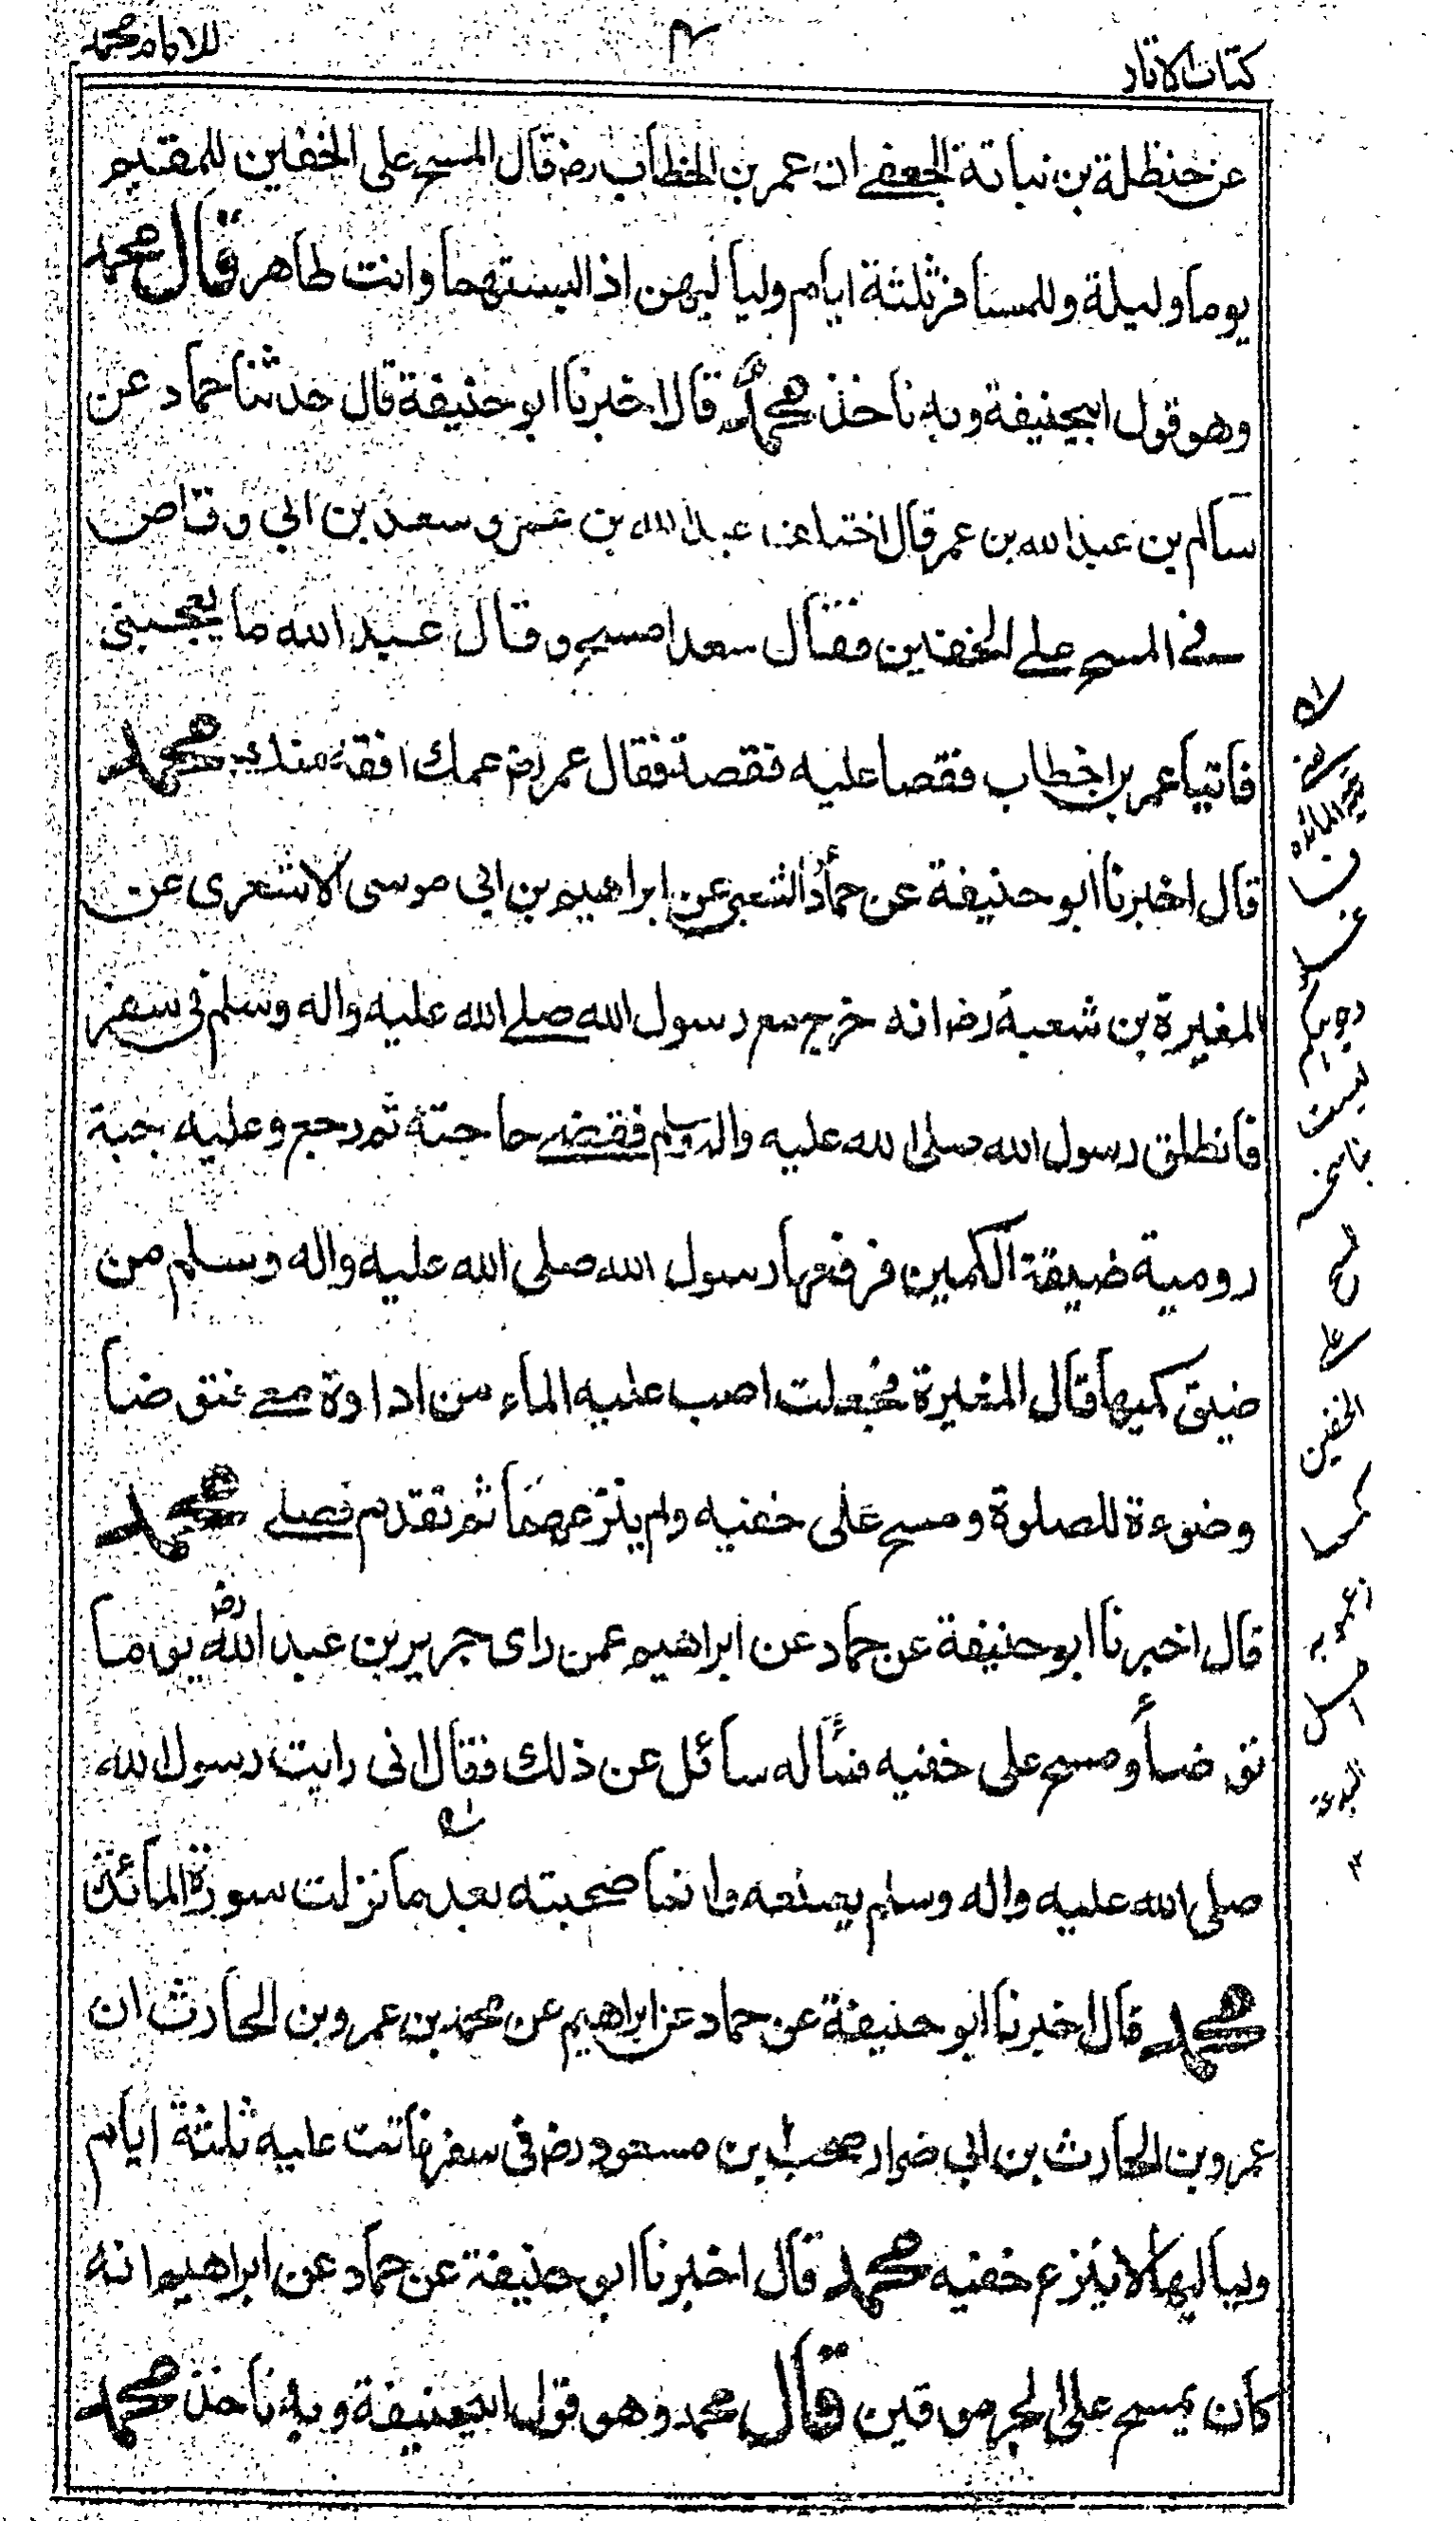 كتاب الاثار
٤
للامام محمد
عن حنظلة بن نباتة الجعفے ان عمر بن الخطاب رض قال المسح على الخفين للمقيم
يوما وليلة وللمسافر ثلثة ايام ولياليهن اذا لبستهما وانت طاهر قال محمد
وهو قول ابيحنيفة وبه ناخذ محمد قال اخبرنا ابو حنيفة قال حدثنا حماد عن
سالم بن عبد الله بن عمر قال اختلف عبد الله بن عمر و سعد بن ابي وقاص
في المسح علے الخفين فقال سعد امسح وقال عبد الله ما يعجبنى
فاتيا عمر بن الخطاب فقصا عليه فقصة فقال عمر رض عمك افقه منك محمد
قال اخبرنا ابو حنيفة عن حماد عن الشعبي عن ابراهيم بن ابي موسى الاشعرى عن
المغيرة بن شعبة رض انه خرج مع رسول الله صلے الله عليه واله وسلم فى سفر
فانطلق رسول الله صلى الله عليه واله وسلم فقضے حاجته ثم رجع وعليه جبة
رومية ضيقة الكمين فرفعها رسول الله صلى الله عليه واله وسلم من
ضيق كميها قال المغيرة فجعلت اصب عليه الماء من اداوة معے فتوضا
وضوءة للصلوة ومسح على خفيه ولم ينزعهما ثم تقدم فصلے محمد
قال اخبرنا ابو حنيفة عن حماد عن ابراهيم عمن راى جرير بن عبد الله رض يوما
توضأ ومسح على خفيه فسأله سائل عن ذلك فقال انى رايت رسول الله
صلى الله عليه واله وسلم يصنعه وانما صحبته بعد ما نزلت سورة المائدة
محمد قال اخبرنا ابو حنيفة عن حماد عن ابراهيم عن محمد بن عمرو بن الحارث ان
عمرو بن الحارث بن ابي ضرار صحب ابن مسعود رض فى سفر فاتت عليه ثلثة ايام
ولياليها لا ينزع خفيه محمد قال اخبرنا ابو حنيفة عن حماد عن ابراهيم انه
كان يمسح على الجرموقين قال محمد وهو قول ابيحنيفة وبه ناخذ محمد
المائدة
نيست
ناسخ
مسح
على
الخفين
البدعة